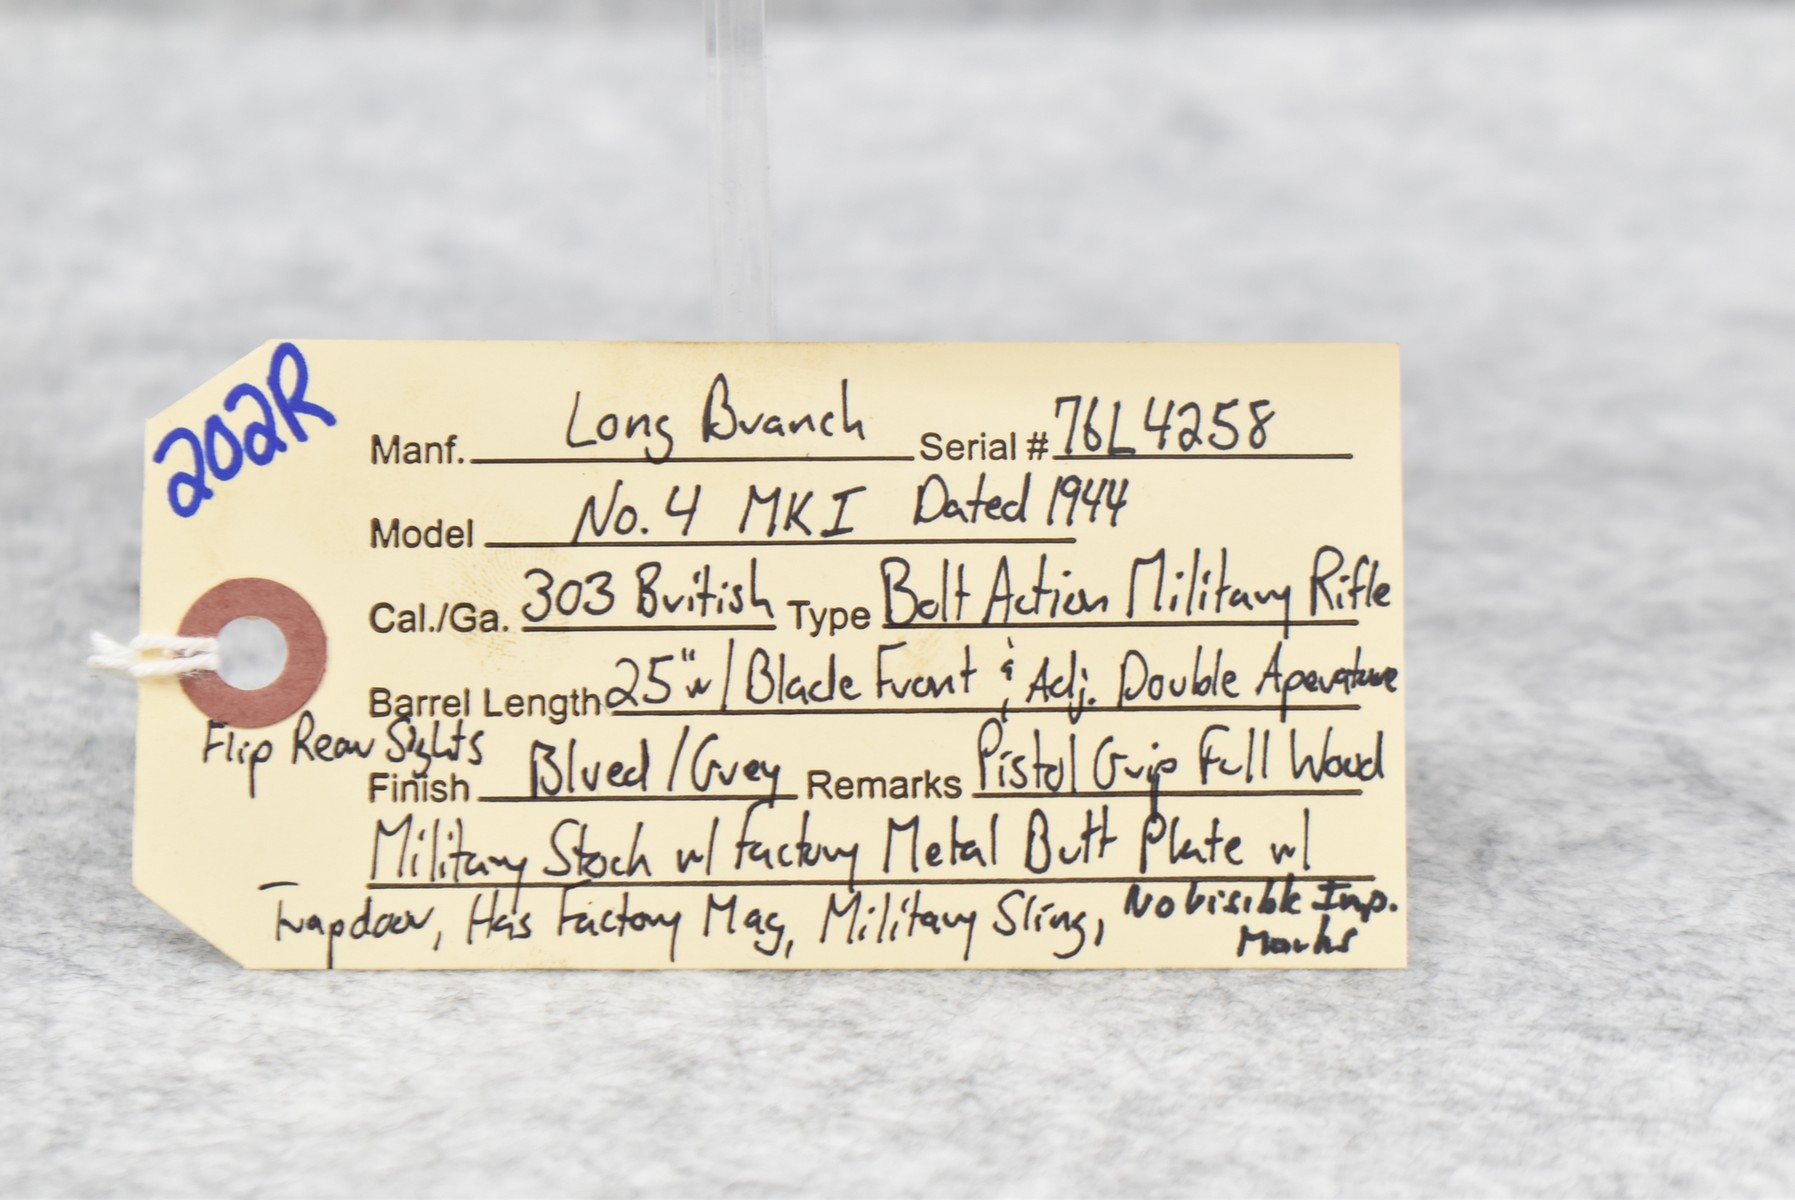 202R
Manf. Long Branch Serial # 76L4258
Model No. 4 MK I Dated 1944
Cal./Ga. 303 British Type Bolt Action Military Rifle
Barrel Length 25" w/ Blade Front & Adj. Double Aperature
Flip Rear Sights
Finish Blued / Grey Remarks Pistol Grip Full Wood
Military Stock w/ Factory Metal Butt Plate w/
Trapdoor, Has Factory Mag, Military Sling, No Visible Imp.
Marks